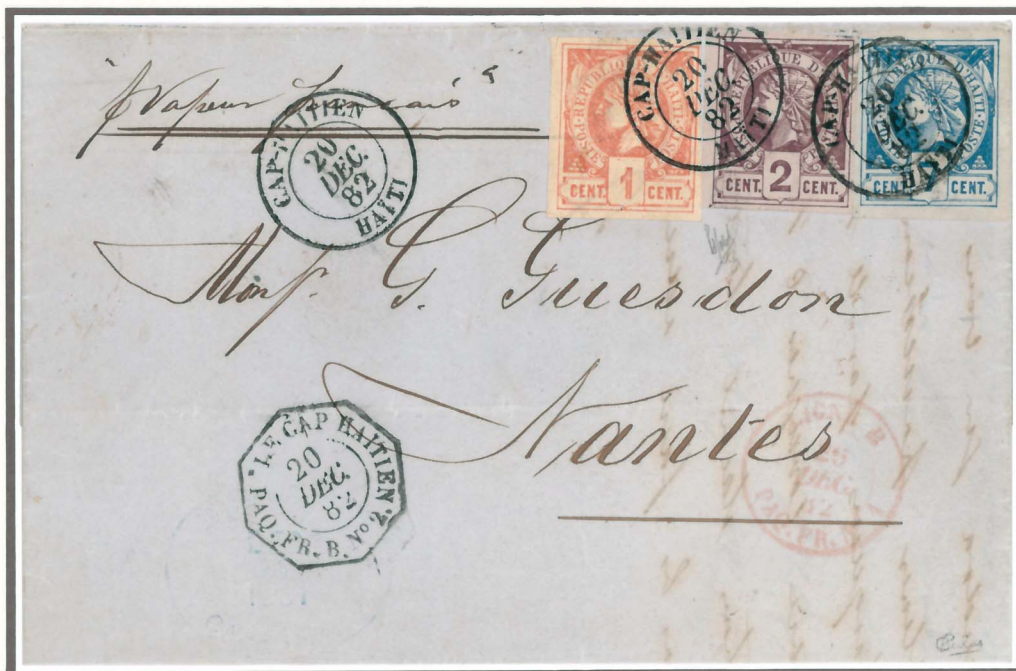 p Vapeur français
CAP-HAÏTIEN
20
DEC.
82
HAÏTI
POSTE-REPUBLIQUE D'HAITI-POSTE
CENT. 1 CENT.
CAP-HAÏTIEN
20
DEC.
82
HAÏTI
REPUBLIQUE D'HAITI-POSTE
CENT. 2 CENT.
CAP-HAÏTIEN
20
DEC.
HAÏTI
REPUBLIQUE D'HAITI-POSTE
CENT. CENT.
Monsr. G. Guesdon
Nantes
LE CAP HAITIEN
20
DEC.
82
PAQ. FR. B. No 2.
LIGNE B
DEC.
82
PAQ. FR.